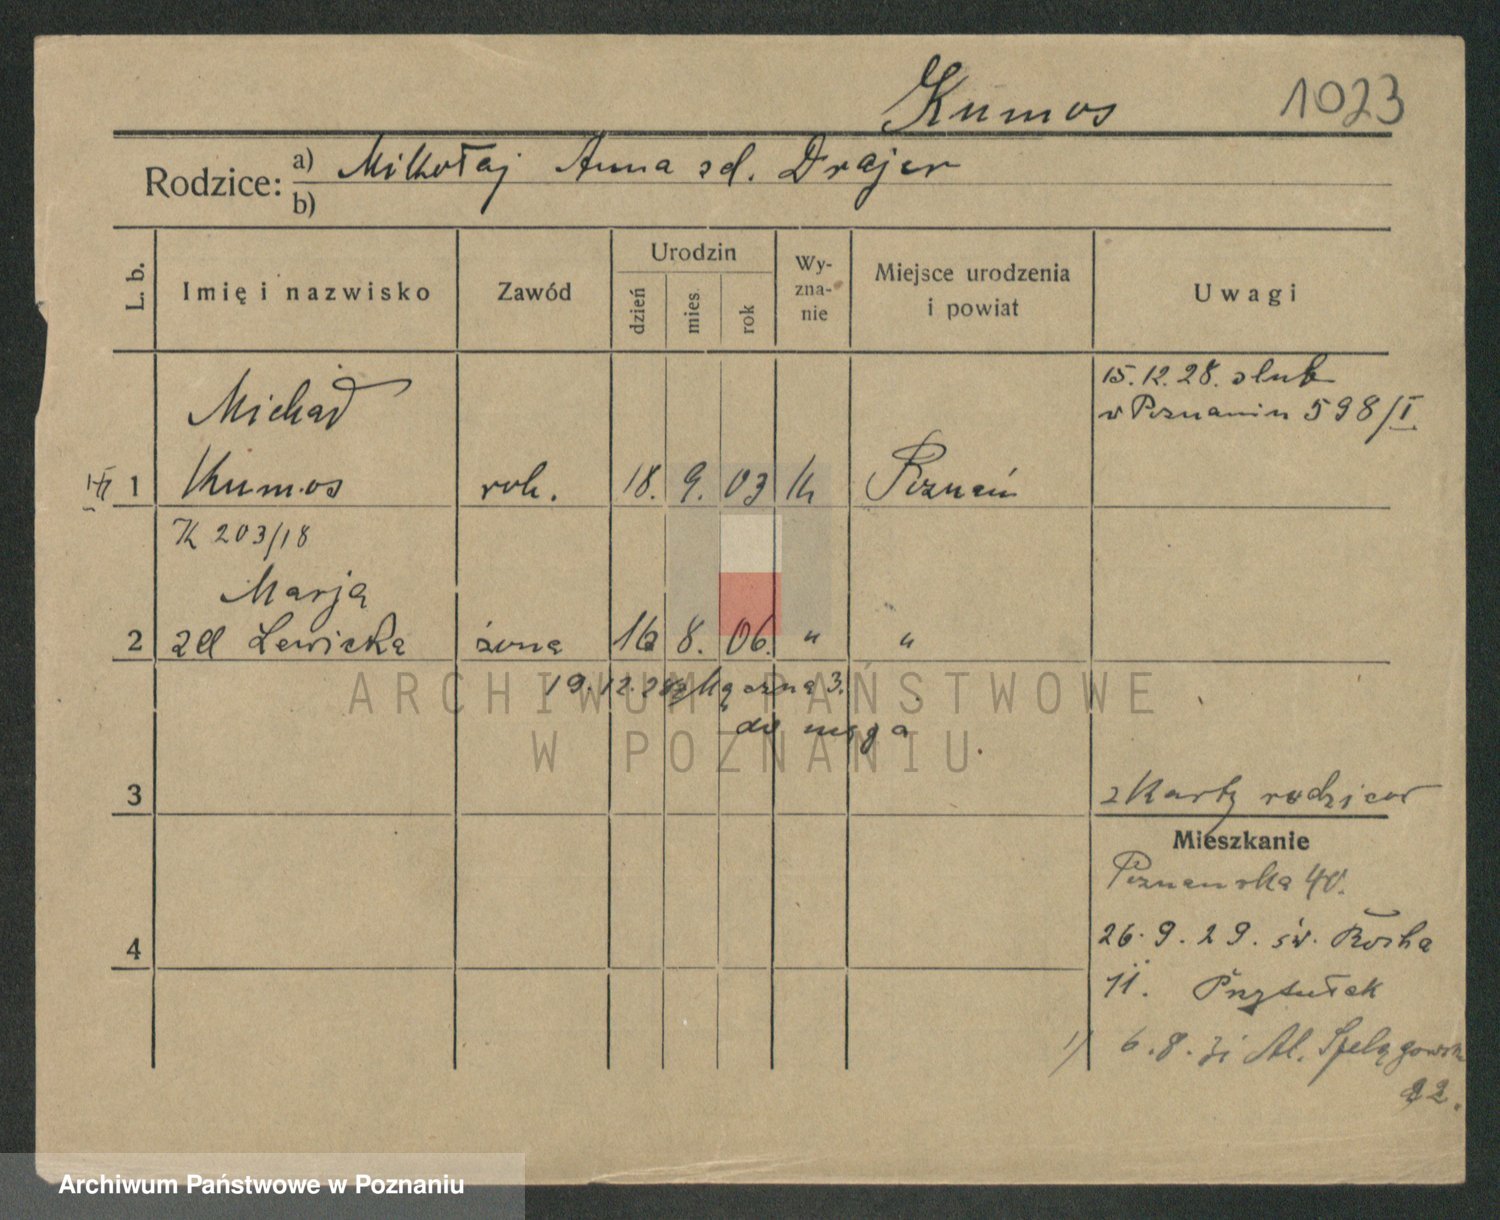 Kumos 1023
Rodzice: a) Mikołaj Anna zd. Drajer
b)
L. b. Imię i nazwisko Zawód Urodzin dzień mies. rok Wyznanie Miejsce urodzenia i powiat Uwagi
15.12.28. slub
w Poznaniu 598/I
Michał
1 Kumos rob. 18. 9. 03 k Poznań
K 203/18
Marja
2 zd Lewicka żona 16 8. 06. " "
19.12.28 z
do męża
3 z Karty rodziców
Mieszkanie
Poznańska 40.
4 26.9.29. św. Rocha
11. Przytułek
1) 6.8.31 Al. Szelągowska
22.
ARCHIWUM PAŃSTWOWE
W POZNANIU
Archiwum Państwowe w Poznaniu